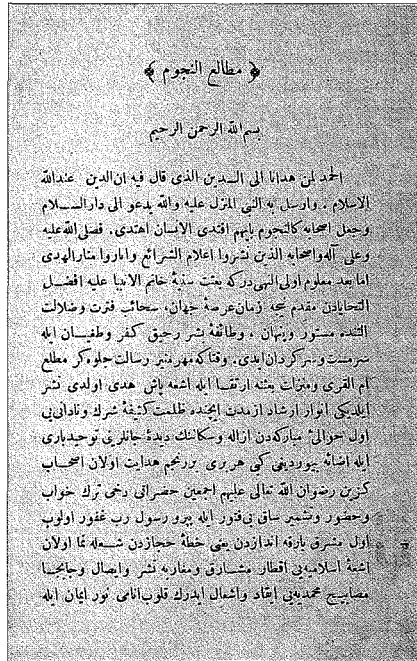 ﴿ مطالع النجوم ﴾
بسم الله الرحمن الرحيم
الحمد لمن هدانا الى الـدين الذى قال فيه ان الدين عندالله
الاسلام . وارسل به النبى المنزل عليه والله يدعو الى دارالسـلام
وجعل اصحابه كالنجوم بايهم اقتدى الانسان اهتدى. فصلى الله عليه
وعلى آله واصحابه الذين نشروا اعلام الشرائع واناروا منار الهدى
اما بعد معلوم اولى النهى دركه بعثت سنيۀ خاتم الانبيا عليه افضـل
التحايادن مقدم نيجه زمان عرصۀ جهان، سحائب فترت وضلالت
التنده مستور وپنهان ، وطائفۀ بشر رحيق كفر وطغيـان ايله
سرمست وسركردان ايدى. وقتاكه مهر منير رسالت جلوه كر مطلع
ام القرى ومنزلت بعثته ارتقـا ايله اشعه پاش هدى اولدى نشر
ايلديكى انوار ارشاد از مدت ايچنده ظلمت كثيفۀ شرك ونادانى يى
اول حوالئ مباركه دن ازاله وسكاننك ديدۀ جانلرينى توحيد بارى
ايله اضائه بيورديغى كبى هر برى بر نجم هدايت اولان اصحـاب
كزين رضوان الله تعالى عليهم اجمعين حضراتى دخى ترك خواب
وحضور وتشمير ساق بى فتور ايله پيرو رسول رب غفور اولوب
اول مشرق بارقه اندازدن يعنى خطۀ حجازدن شـعله نما اولان
اشعۀ اسلاميه يى اقطار مشـارق ومغاربه نشر وايصال وجابجـا
مصابيح محمديه يى ايقاد واشعال ايدرك قلوب انامى نور ايمان ايله